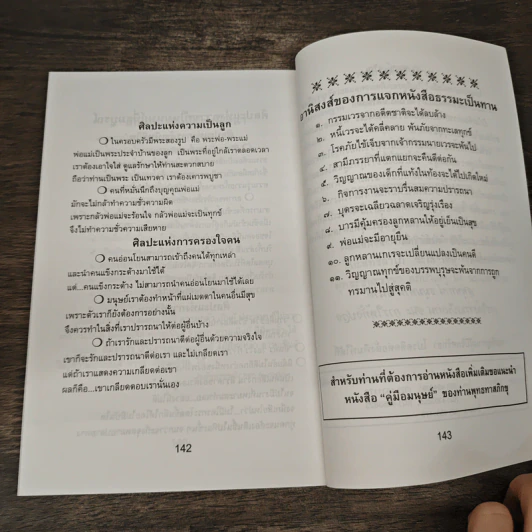 ศิลปะแห่งความเป็นลูก
❍ ในครอบครัวมีพระสองรูป คือ พระพ่อ-พระแม่
พ่อแม่เป็นพระประจำบ้านของลูก เป็นพระที่อยู่ใกล้เราตลอดเวลา
เราต้องเอาใจใส่ ดูแลรักษาให้ท่านสะดวกสบาย
ถือว่าท่านเป็นพระ เป็นเทวดา เราต้องเคารพบูชา
❍ คนที่หมั่นนึกถึงบุญคุณพ่อแม่
มักจะไม่กล้าทำความชั่วความผิด
เพราะกลัวพ่อแม่จะร้อนใจ กลัวพ่อแม่จะเป็นทุกข์
จึงไม่ทำความชั่วความเสียหาย
ศิลปะแห่งการครองใจคน
❍ คนอ่อนโยนสามารถเข้าถึงคนได้ทุกเหล่า
และนำคนแข็งกระด้างมาใช้ได้
แต่...คนแข็งกระด้าง ไม่สามารถนำคนอ่อนโยนมาใช้ได้เลย
❍ มนุษย์เราต้องทำหน้าที่แผ่เมตตาในคนอื่นมีสุข
เพราะตัวเราก็ยังต้องการอย่างนั้น
จึงควรทำในสิ่งที่เราปรารถนาให้ต่อผู้อื่นบ้าง
❍ ถ้าเรารักและปรารถนาดีต่อผู้อื่นด้วยความจริงใจ
เขาก็จะรักและปรารถนาดีต่อเรา และไม่เกลียดเรา
แต่ถ้าเราแสดงความเกลียดต่อเขา
ผลก็คือ...เขาเกลียดตอบเรานั่นเอง
142
อานิสงส์ของการแจกหนังสือธรรมะเป็นทาน
๑. กรรมเวรจากอดีตชาติจะได้ลบล้าง
๒. หนี้เวรจะได้คลี่คลาย พ้นภัยจากทะเลทุกข์
๓. โรคภัยไข้เจ็บจากเจ้ากรรมนายเวรจะพ้นไป
๔. สามีภรรยาที่แตกแยกจะคืนดีต่อกัน
๕. วิญญาณของเด็กที่แท้งในท้องจะได้ไปเกิดใหม่
๖. กิจการงานจะราบรื่นสมความปรารถนา
๗. บุตรจะเฉลียวฉลาดเจริญรุ่งเรือง
๘. บารมีคุ้มครองลูกหลานให้อยู่เย็นเป็นสุข
๙. พ่อแม่จะมีอายุยืน
๑๐. ลูกหลานเกเรจะเปลี่ยนแปลงเป็นคนดี
๑๑. วิญญาณทุกข์ของบรรพบุรุษจะพ้นจากการถูก
ทรมานไปสู่สุคติ
สำหรับท่านที่ต้องการอ่านหนังสือเพิ่มเติมขอแนะนำ
หนังสือ "คู่มือมนุษย์" ของท่านพุทธทาสภิกขุ
143